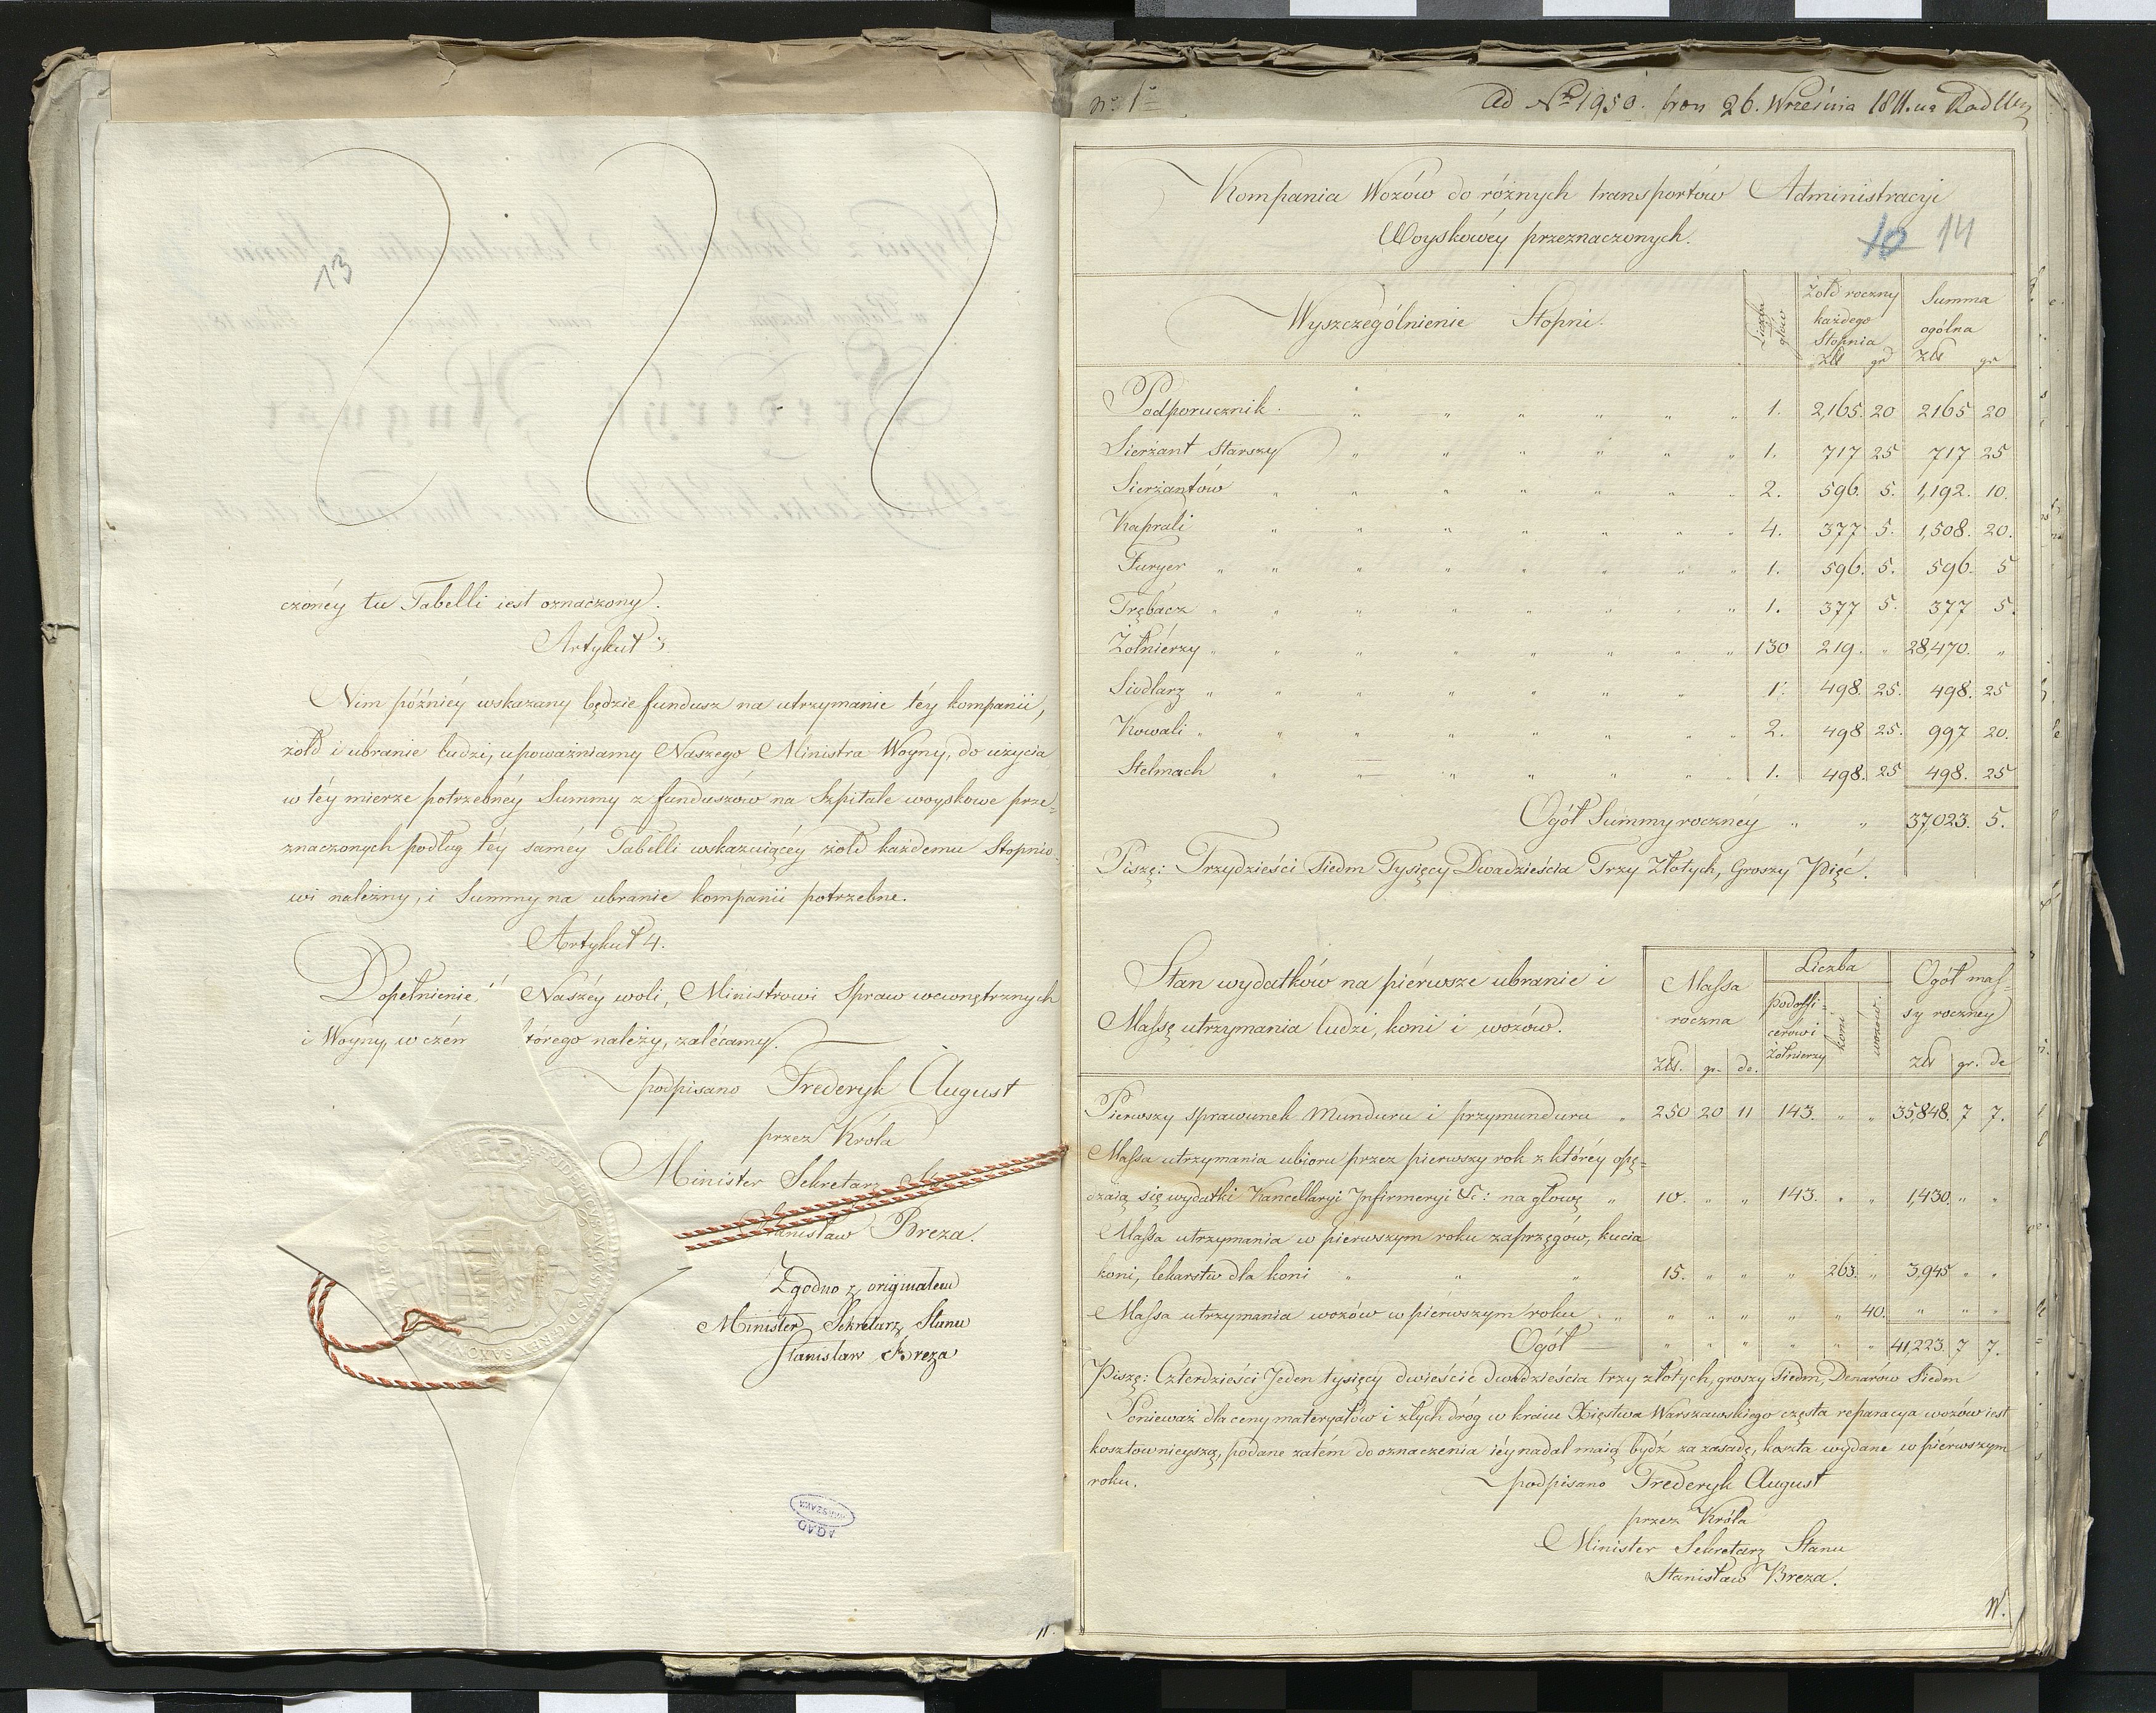 13
czonéy tu Tabelli iest oznaczony.
Artykuł 3
Nim późniéy wskazany będzie fundusz na utrzymanie téy kompanii,
żołd i ubranie ludzi, upoważniamy Naszego Ministra Woyny, do użycia
w téy mierze potrzebnéy Summy z funduszów na Szpitale woyskowe prze=
znaczonych podług téy saméy Tabelli wskazuiącéy żołd każdemu Stopnio
wi należny, i Summy na ubranie kompanii potrzebne.
Artykuł 4.
Dopełnienie Naszéy woli, Ministrowi Spraw wewnętrznych
i Woyny, w czém którego należy, zalécamy.
podpisano Frederyk August
przez Króla
Minister Sekretarz
Stanisław Breza.
Zgodno z originałem
Minister Sekretarz Stanu
Stanisław Breza
AGAD
WARSZAWA
11.
No. 1o
Ad No 1950. 26. Września 1811.
Kompania Wozów do różnych transportów Administracyi
Woyskowéy przeznaczonych.
10 14
Wyszczególnienie Stopni. Liczba głów Żołd roczny każdego Stopnia Złł gr Summa ogólna Złł gr
Podporucznik. " " " " " " 1. 2,165. 20 2165 20
Sierżant Starszy " " " " " " 1. 717 25 717 25
Sierżantów " " " " " " " 2. 596. 5. 1,192. 10.
Kaprali " " " " " " " 4. 377 5. 1,508. 20.
Furyer " " " " " " " " 1. 596. 5. 596. 5
Trębacz " " " " " " " " 1. 377 5. 377 5.
Żołniérzy " " " " " " " " 130 219. " 28,470. "
Siodlarz " " " " " " " 1. 498. 25. 498. 25
Kowali " " " " " " " " 2. 498 25. 997 20.
Stelmach " " " " " " " 1. 498. 25 498. 25
Ogół Summy roczney " " 37,023. 5.
Piszę: Trzydzieści Siedm Tysięcy Dwadzieścia Trzy Złotych, Groszy Pięć.
Stan wydatków na piérwsze ubranie i
Massę utrzymania ludzi, koni i wozów.
Massa roczna złł. gr. de. Liczba podoffi=cerów i żołnierzy koni wozów. Ogół mas=sy roczney złł gr. de
Pierwszy sprawunek Munduru i przymunduru " 250 20 11 143. " " 35,848. 7 7.
Massa utrzymania ubioru przez pierwszy rok z któréy opę=
dzaią się wydatki Kancellaryi Infirmeryi &c: na głowę " 10. " " 143. " " 1,430. " "
Massa utrzymania w pierwszym roku zaprzęgów, kucia
koni, lekarstw dla koni " " " 15. " " " 263. " 3,945 " "
Massa utrzymania wozów w piérwszym roku " " " " " " 40. " " "
Ogół " " " " " " 41,223. 7 7.
Piszę: Czterdzieści Jeden tysięcy dwieście dwadzieścia trzy złotych, groszy Siedm, Denarów Siedm
Ponieważ dla ceny materyałów i złych dróg w kraiu Xięstwa Warszawskiego częsta reparacya wozów iest
kosztownieyszą, podane zatém do oznaczenia iéy nadal maią bydź za zasadę, koszta wydane w piérwszym
roku.
podpisano Frederyk August
przez Króla
Minister Sekretarz Stanu
Stanisław Breza.